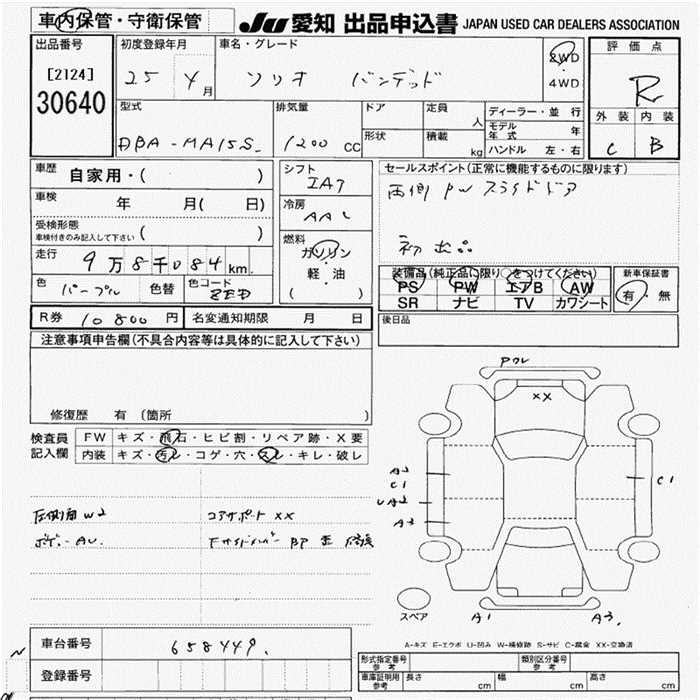 車内保管・守衛保管
JU 愛知 出品申込書 JAPAN USED CAR DEALERS ASSOCIATION
出品番号
[2124]
30640
初度登録年月
25 4月
車名・グレード
ソリオ バンデット
2WD
・
4WD
評価点
R
外装 内装
C B
型式
DBA-MA15S
排気量
1200 CC
ドア
形状
定員
人
積載
kg
ディーラー・並行
モデル年式 年
ハンドル 左・右
車歴
自家用・( )
車検
年 月( 日)
受検形態
車検付きのみ記入して下さい ( )
走行
9万8千084km
色 パープル 色替 色コード ZED
シフト
IA7
冷房
AAC
燃料
ガソリン
・
軽・油
( )
セールスポイント(正常に機能するものに限ります)
両側 PW スライドドア
初出品
装備品(純正品に限り○をつけてください)
PS PW エアB AW
SR ナビ TV カワシート
新車保証書
有・無
R券 10800円 名変通知期限 月 日
後日品
注意事項申告欄(不具合内容等は具体的に記入して下さい)
修復歴 有 (箇所 )
検査員
記入欄
FW キズ・飛石・ヒビ割・リペア跡・X要
内装 キズ・汚レ・コゲ・穴・スレ・キレ・破レ
左側面 W2
コアサポート XX
ボデー AU
PウL
XX
A2
C1
UA2
A2
C1
スペア
A1
A3
A-キズ E-エクボ U-凹み W-補修跡 S-サビ C-腐食 XX-交換済
車台番号 658449
登録番号
形式指定番号
参考
類別区分番号
参考
車庫証明用
参考
長さ cm 幅 cm 高さ cm